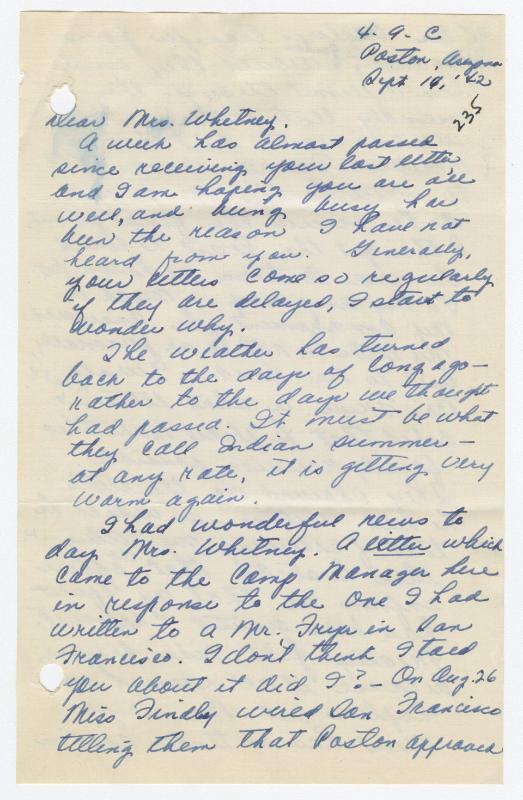 4-9-C
Poston, Arizona
Sept 19, '42
235
Dear Mrs. Whitney,
A week has almost passed
since receiving your last letter
and I am hoping you are all
well, and being busy has
been the reason I have not
heard from you. Generally,
your letters come so regularly
if they are delayed, I start to
wonder why.
The weather has turned
back to the days of long ago—
rather to the days we thought
had passed. It must be what
they call Indian summer—
at any rate, it is getting very
warm again.
I had wonderful news to
day Mrs. Whitney. A letter which
came to the Camp Manager here
in response to the one I had
written to a Mr. in San
Francisco. I don't think I told
you about it did I? — On Aug. 26
Miss Findley wired San Francisco
telling them that Poston approved